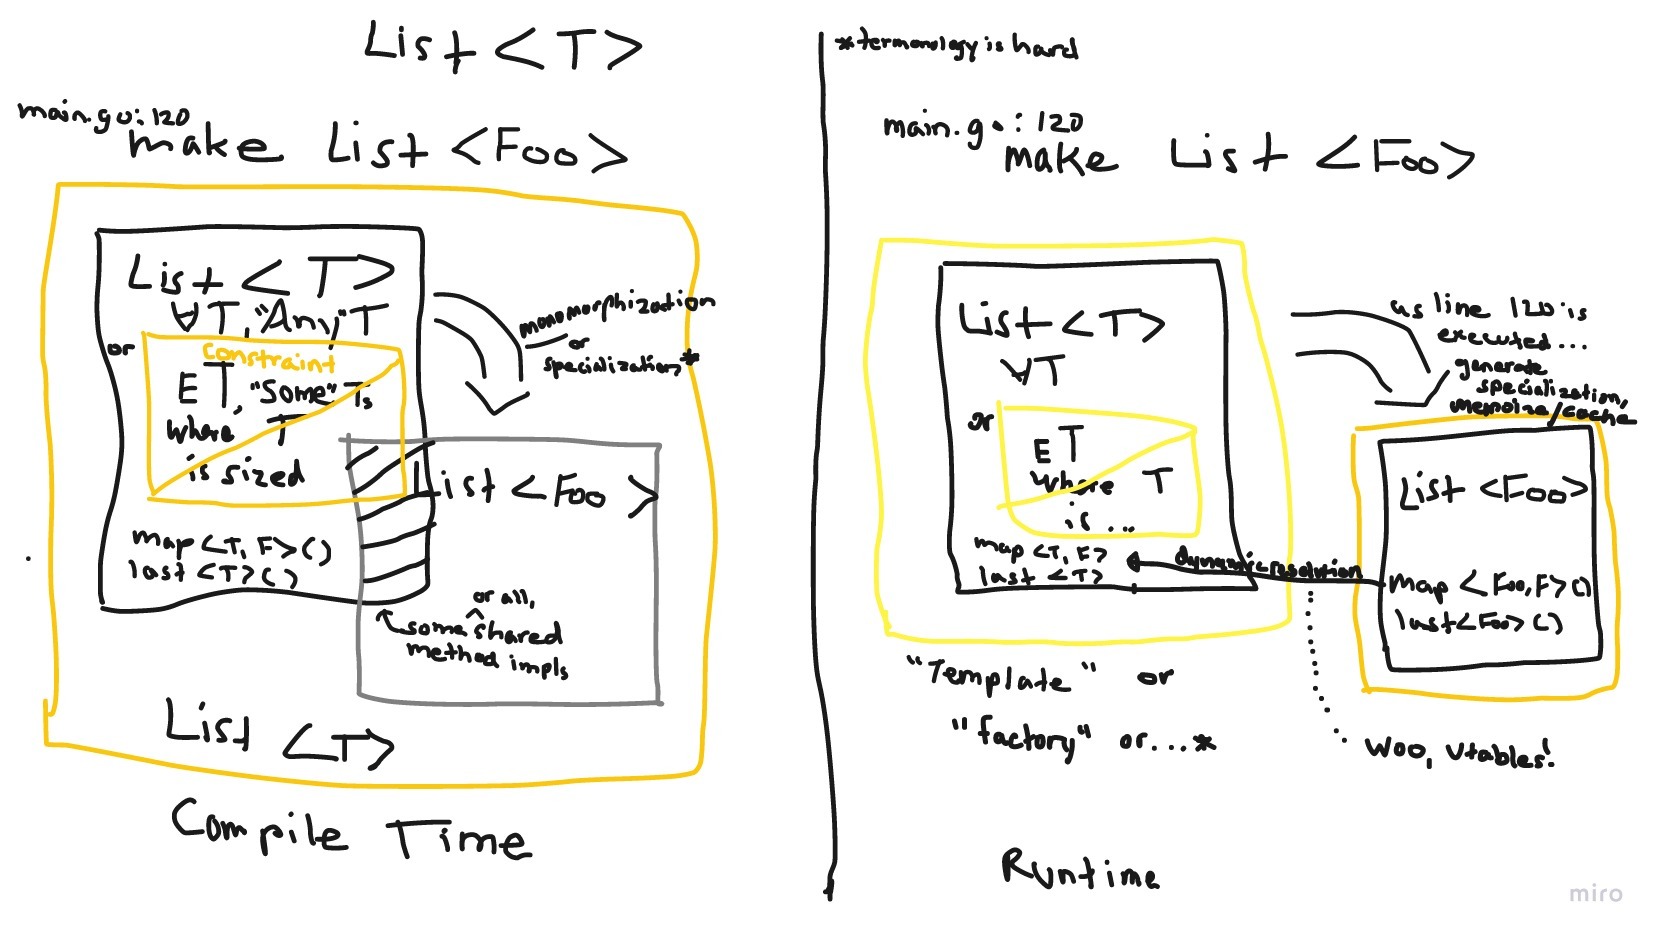 List <T>
main.go:120
make List <Foo>
List <T>
∀T, "Any" T
or
constraint
E T, "Some" Ts
where T
is sized
map <T, F> ()
last <T> ()
monomorphization
or
specialization*
List <Foo>
or all,
some shared
method impls
List <T>
Compile Time
*termonology is hard
main.go:120
make List <Foo>
List <T>
∀T
or
E T
where T
is ...
map <T, F>
last <T>
"Template" or
"factory" or...*
as line 120 is
executed...
generate
specialization,
memoize/cache
List <Foo>
dynamic resolution
map <Foo, F> ()
last <Foo> ()
woo, vtables!
Runtime
miro